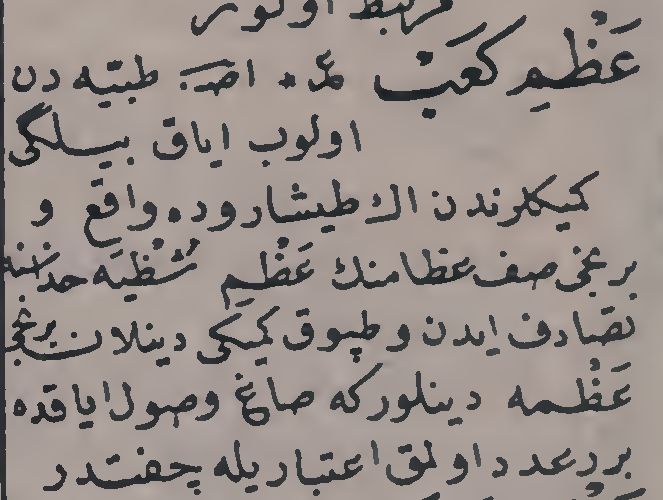 مرتبط اولور
عَظْمِ كَعَبْ عر * اصـ طبيّه دن
اولوب اياق بيلكى
كيكلرندن اڭ طيشاروده واقع و
برنجى صف عظامنڭ عَظْمِ شُظْيَه حذاسنه
تصادف ايدن و طپوق كميكى دينلان برنجى
عَظْمه دينلوركه صاغ وصول اياقده
بررعدد اولمق اعتباريله چفتدر